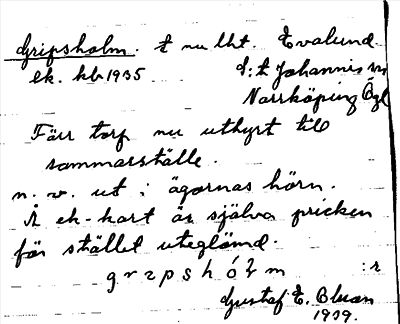 Gripsholm. t nu lht. Evalund.
ek. kb 1935. d:t Johannis sn
Norrköping Ögl
Förr torp nu uthyrt till
sommarställe.
n. v. ut i ägornas hörn.
Å ek-kart är själva pricken
för stället uteglömd.
grepshólm :r
Gustaf E.
1939.